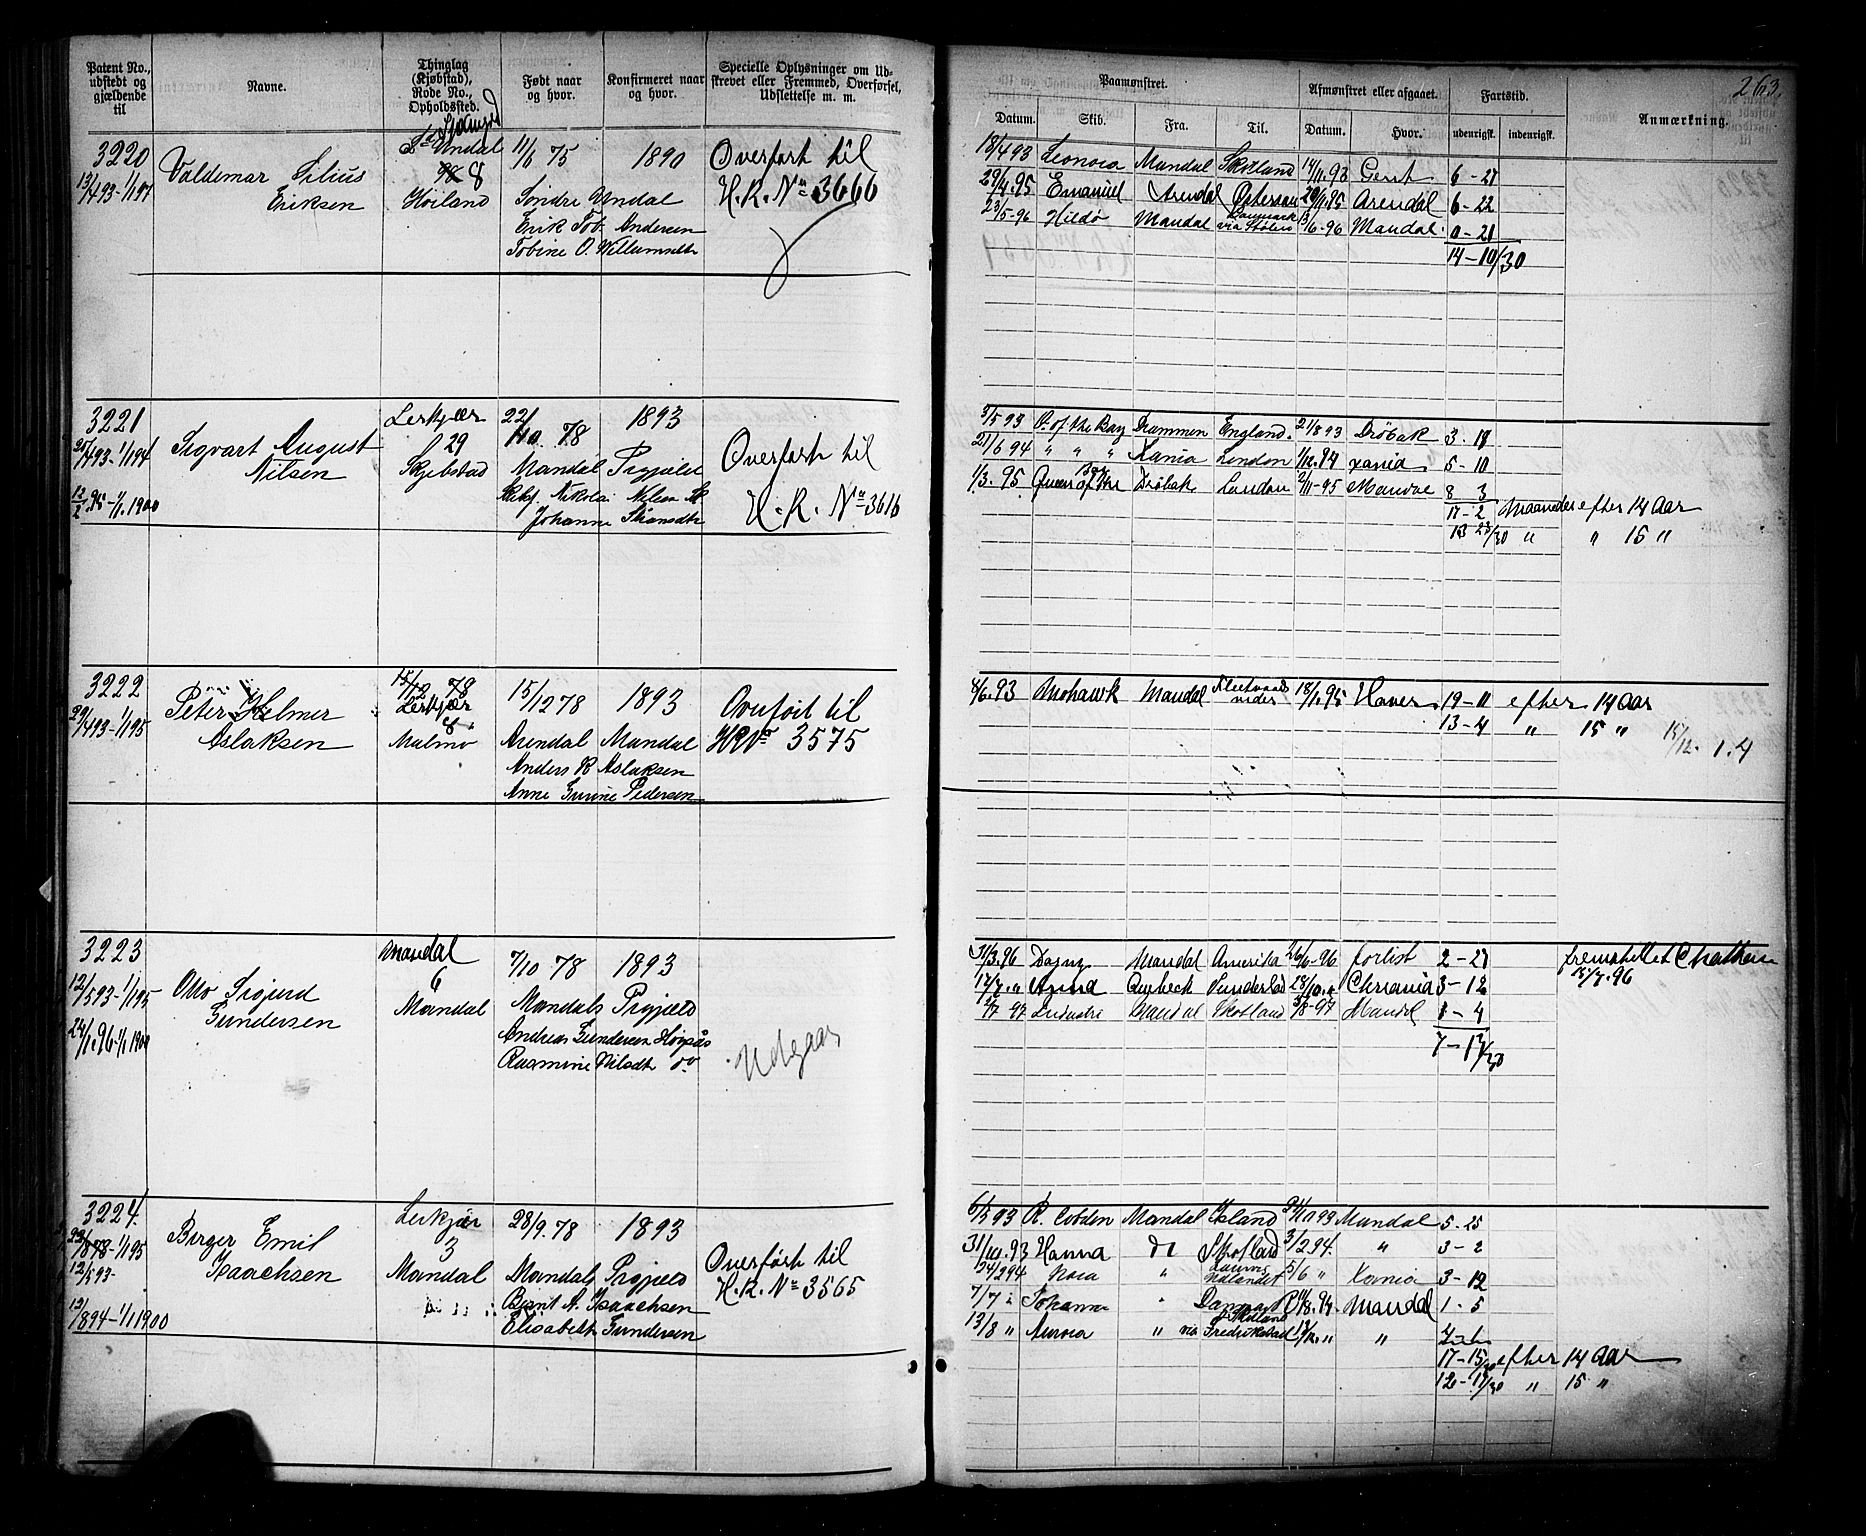 Patent No., udstedt og gjældende til
Navne.
Thinglag (Kjøbstad), Rode No., Opholdssted.
Født naar og hvor.
Konfirmeret naar og hvor.
Specielle Oplysninger om Udskrevet eller Fremmed, Overførsel, Udslettelse m. m.
3220
13/4 93-1/1 97
Valdemar Silius
Eriksen
Undal
8
Høiland
11/6 75
1890
Søndre Undal
Erik Tob. Andersen
Tobine O. Willumsdtr
Overført til
H.R. No 3666
3221
1/1 94
12/2 95-1/1 1900
Sigvart August
Nilsen
Lerkjær
29
Skjebstad
22/10 78
1893
Mandal Prgjæld
Nikolai Nilsen
Johanne
Overført til
H.R. No 3616
3222
29/4 93-1/1 95
Peter Helmer
Aslaksen
15/12 78
Lerkjær
8
Malmø
15/12 78
1893
Arendal Mandal
Anders R Aslaksen
Anne Gurine Pedersen
Overført til
HR No 3575
3223
12/5 93-1/1 95
24/1 96-1/1 1900
Otto Sigurd
Gundersen
Mandal
6
Mandal
7/10 78
1893
Mandals Prgjæld
Andreas Gundersen
Rasmine Nilsdtr do
Udgaar
3224
1/1 95
12/5 93-
12/8 94-1/1 1900
Birger Emil
Isaachsen
Lerkjær
3
Mandal
28/9. 78
1893
Mandals Prgjæld
Bernt A. Isaachsen
Elisabeth Gundersen
Overført til
H.R. No 3565
263.
Paamønstret.
Afmønstret eller afgaaet.
Fartstid.
Anmærkning.
Datum. Skib. Fra. Til. Datum. Hvor. udenrigsk. indenrigsk.
18/4 93 Leonora Mandal Skotland 14/11. 93 Gent 6-27
29/4. 95 Emanuel Arendal Østersøen Arendal 6-22
23/5-96 Hildø Mandal Danmark via 13/6-96 Mandal. 0-21
14-10/30
3/5 93 Q. of the Bay Drammen England. 21/8 93 Drøbak 3. 18
21/6 94 " " " Xania London 1/12. 94 Xania 5-10
1/3. 95 Queen of the Bay Drøbak London 2/11-95 Mandal 8 3
17-2 Maaneder efter 14 Aar
13 23/30 " " 15 "
8/6. 93 Mohawk Mandal 18/1. 95 Havre 19-11 efter 14 Aar
13-4 " 15 "
15/12. 1. 4
31/3. 96 Dagny Mandal Amerika 26/6-96 forlist 2-27 fremstillet Chatham
15/7. 96
Quebeck Sunderland Chriania 3-12
2/7 97 Industri Mandal Skotland 5/8-97 Mandal 1-4
7-13/30
6/5 93 R. Cobden Mandal Island Mandal 5-25
31/10. 93 Hanna do Skotland 3/2 94. " 3-2
24/2 94 Nora " Laurvig Udlandet 5/6 " Xania 3-12
7/7 " Johanne " Danmark Mandal 1. 5
13/8 " Aurora " via Fredrikstad "
17-15/30 efter 14 Aar
12-11/30 " 15 "